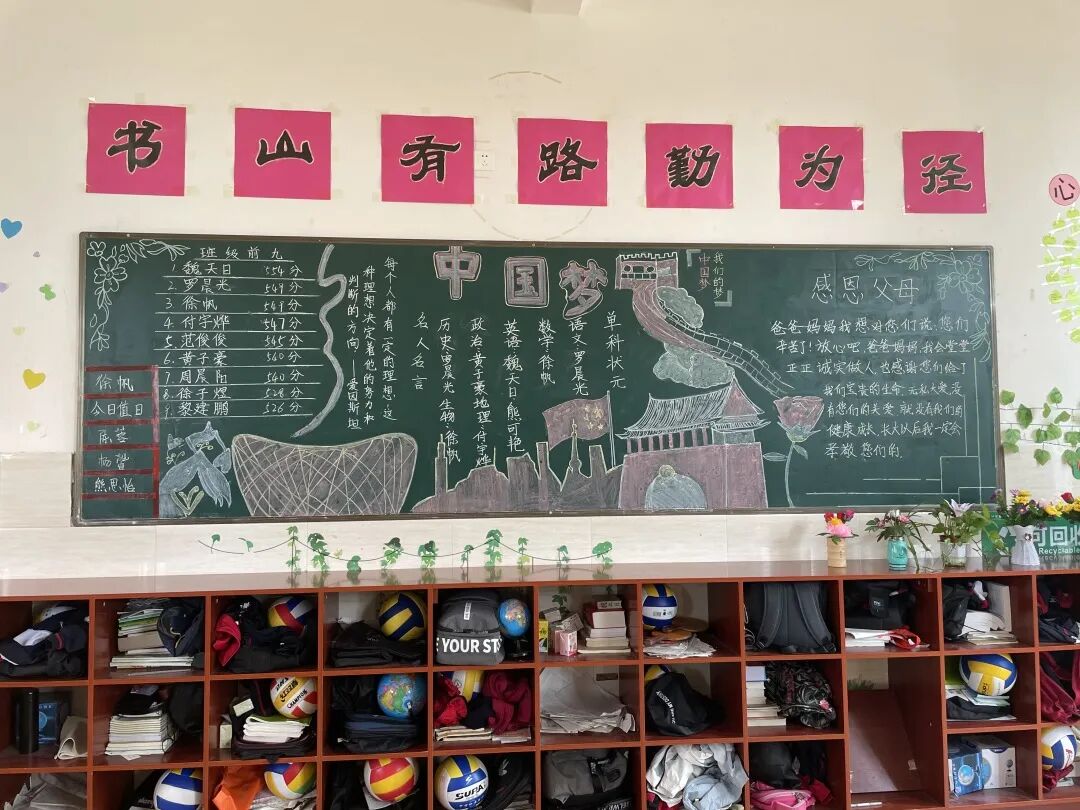 书山有路勤为径
心
班级前九
1. 魏天日 554分
2. 罗晨光 549分
3. 徐帆
4. 付宇烨 547分
5. 范俊俊 545分
6. 黄子豪 540分
7. 周晨阳 540分
8. 徐子煜 528分
9. 黎建鹏 526分
徐帆
今日值日
杨智
熊思怡
每个人都有一定的理想，这
种理想决定着他的努力和
判断的方向。——爱因斯坦
名人名言
中国梦
单科状元
语文：罗晨光
数学：徐帆
英语：魏天日 熊可艳
政治：黄子豪 地理：付宇烨
历史：罗晨光 生物：徐帆
我们的梦
中国梦
感恩父母
爸爸妈妈我想对您们说，您们
辛苦了！放心吧，爸爸妈妈，我会堂堂
正正诚实做人也感谢您们给了
我们宝贵的生命，无私大爱，没
有您们的关爱就没有我们的
健康成长，长大以后我一定会
孝敬您们的。
可回收
Recyclable
YOUR ST
CHAMPION
SUPA